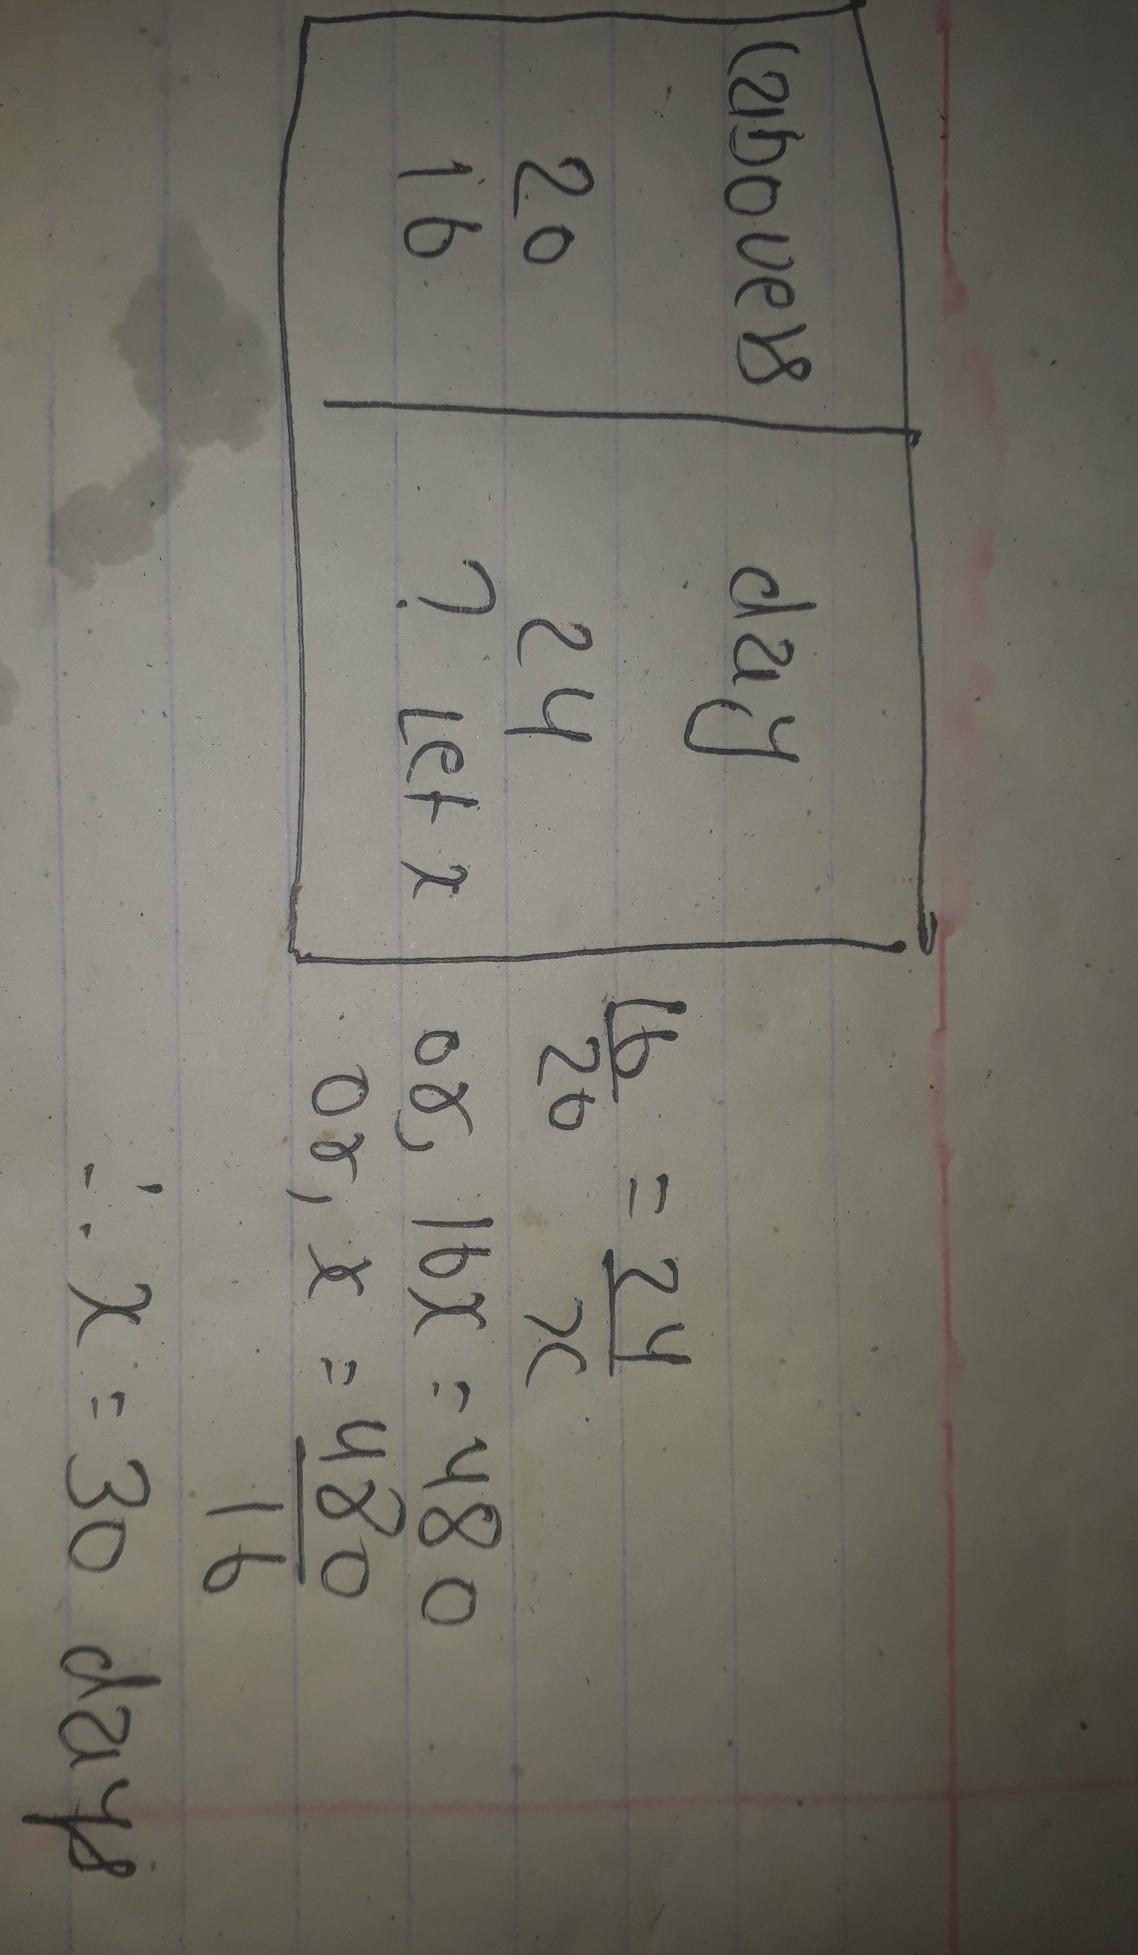 labovers day
20 24
16 ? Let x
16/20 = 24/x
or, 16x = 480
or, x = 480/16
∴ x = 30 days